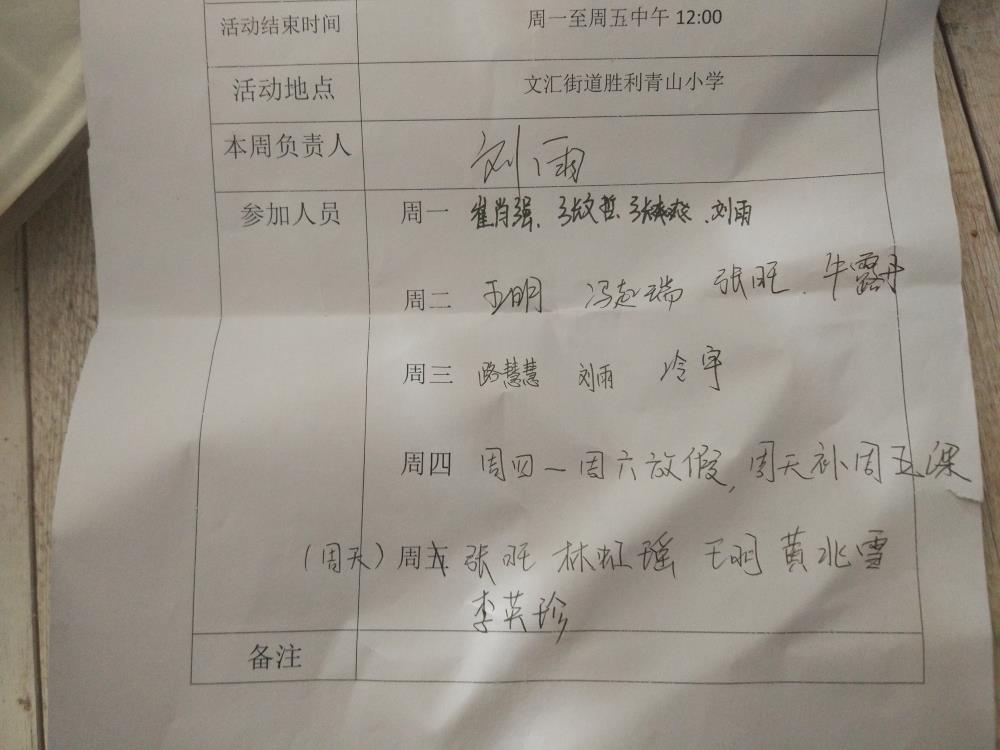 活动结束时间 周一至周五中午 12:00
活动地点 文汇街道胜利青山小学
本周负责人 刘雨
参加人员 周一 崔肖强、张文哲、刘雨
周二 王明 冯赵瑞 张旺、牛露丹
周三 路慧慧 刘雨 冷宇
周四 周四一周六放假,周天补周五课
(周天)周五 张旺 林虹瑶 王明 黄兆雪
李英珍
备注